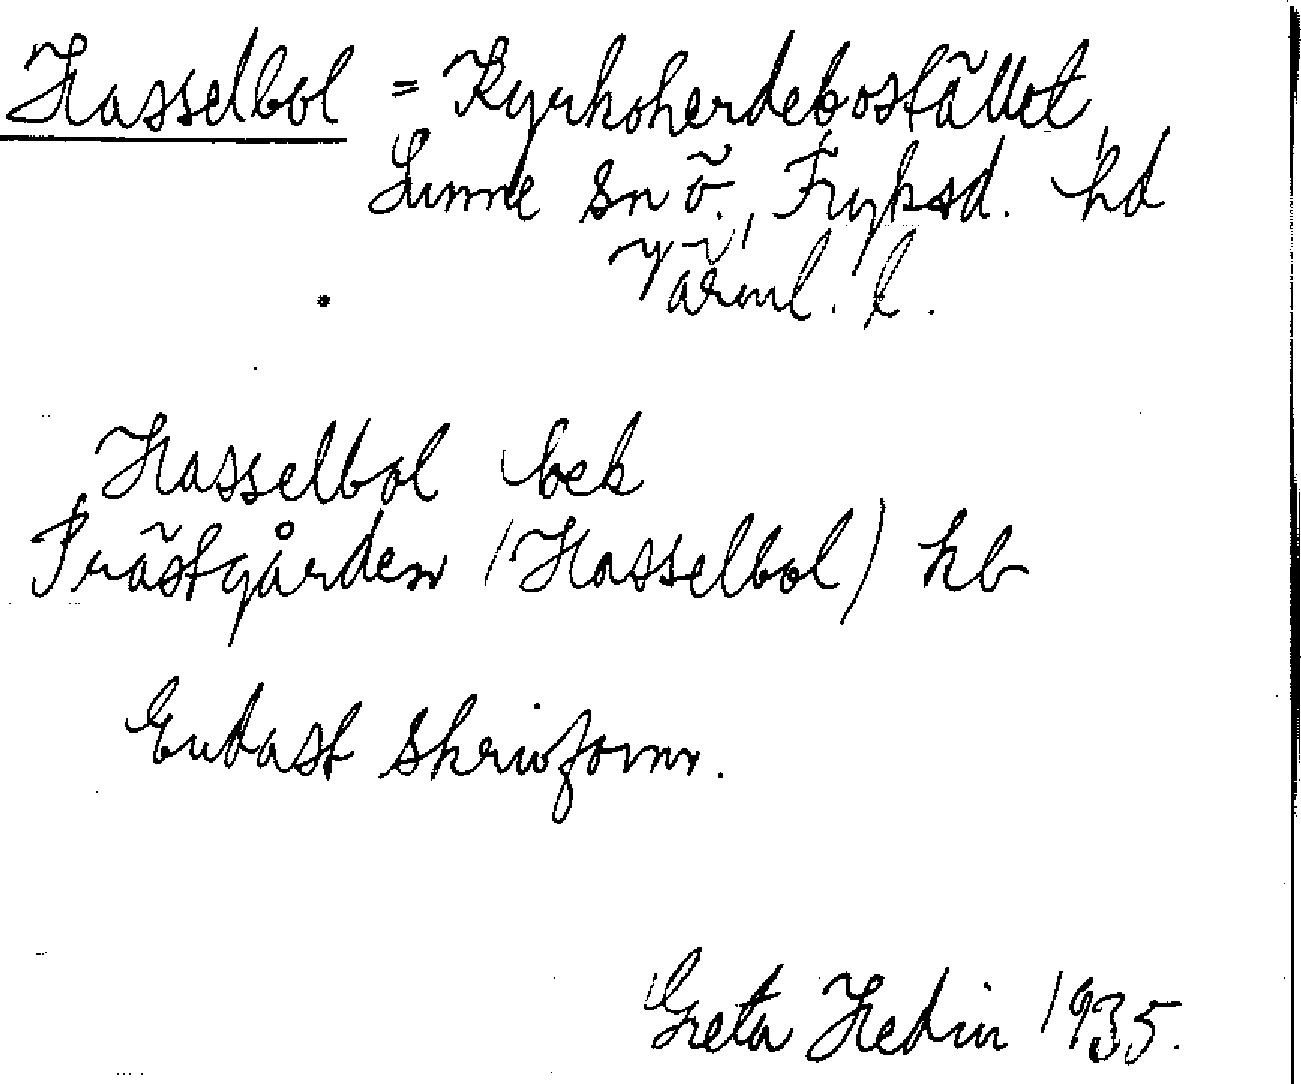 Hasselbol = Kyrkoherdebostället,
Sunne sn ö., Fryksd. hd
Värml. l.
Hasselbol bek
Prästgården (Hasselbol) kb
Endast skrivform.
Greta Hedin 1935.